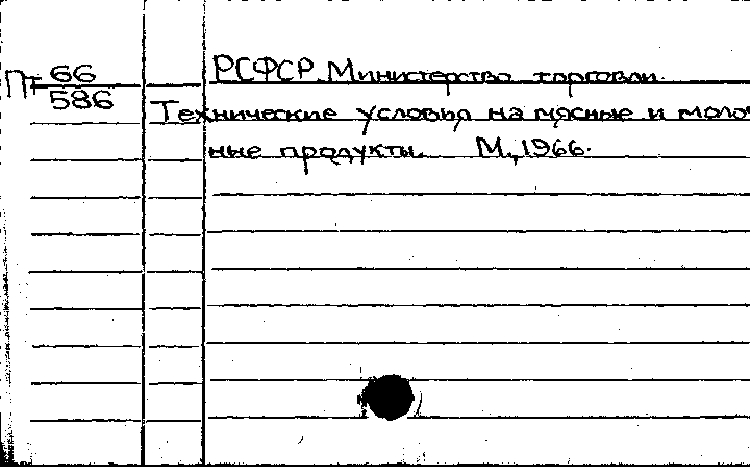 Пт 66
586
РСФСР. Министерство торговли.
Технические условия на мясные и молоч
ные продукты. М., 1966.